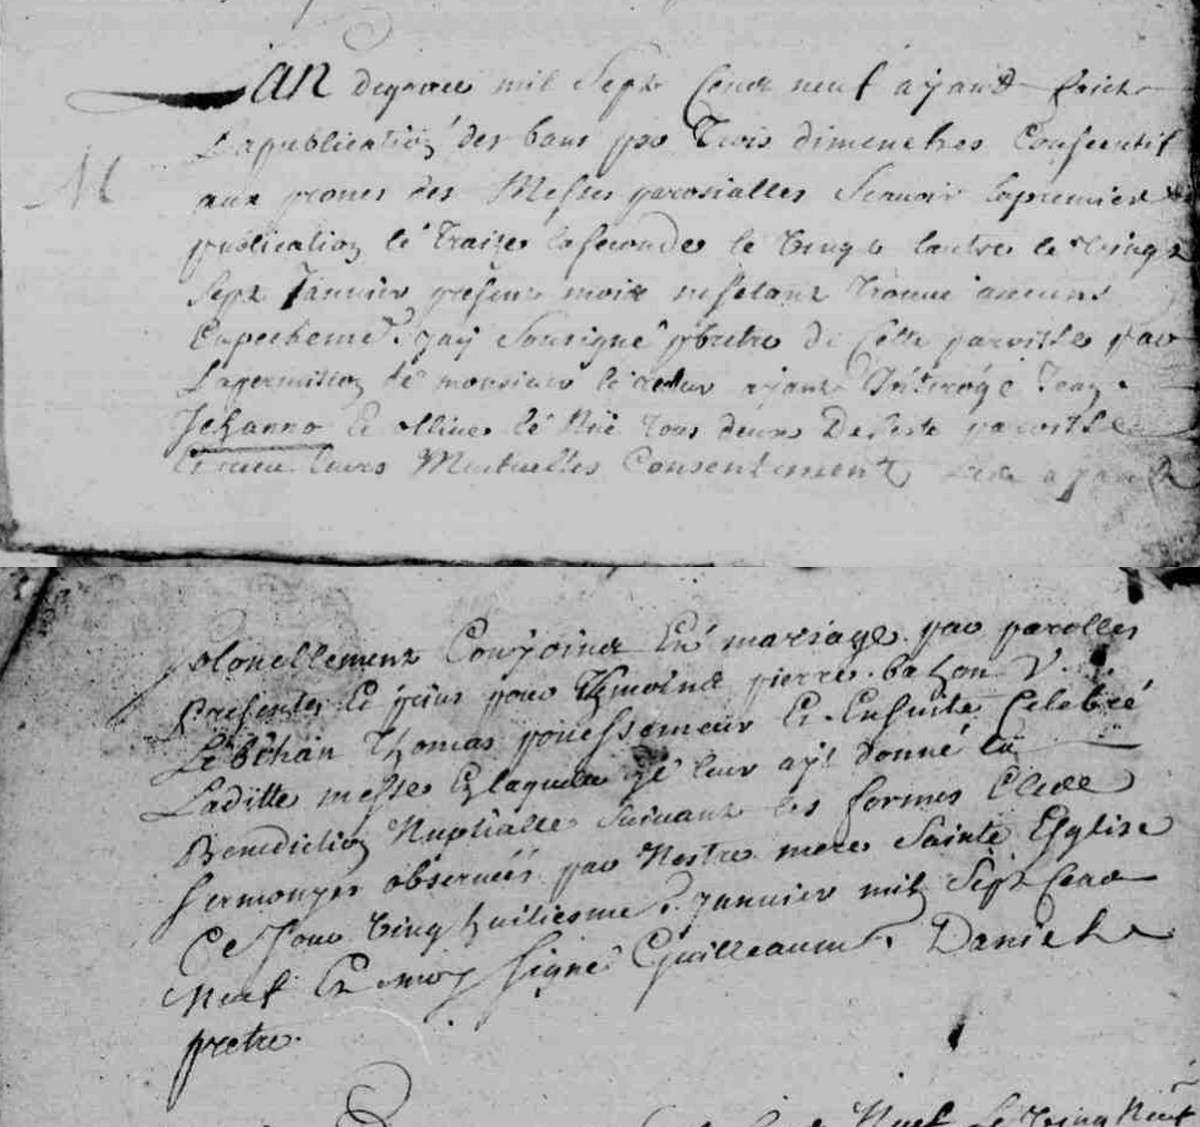 LAN degrace mil Sept Cent neuf ayant faict
La publication des bans par Trois dimenches Consecutif
M
aux prones des Messes parosialles Scauoir La premiere
publication le Traize la seconde le Vingt lautre le Vingt
Sept Janvier presens mois nestant Trouué aucuns
Empechemt. jay Sousigné pbretre de Cette paroisse par
La permition de monsieur le recteur ayant Interogé Jean
Jehanno Et olliue le Nué Tous deux De Ceste paroisse
Et receu leurs Mutuelles Consentement ayant
solonellement Conjoinct En mariage par parolles
Presentes Et prins pour Themoins pierre bahon V.
Le bihan Thomas et Ensuite Celebré
Laditte messe En laquelle Jé leur ayt donné La
Benediction Nuptialle Suivant les formes
observeés par Nostre mere Sainte Esglise
Ce Jour Vingt huitiesme Janvier mil Sept Cent
Neuf Et moy Signé Guilleaume Daniel
pretre.
Neuf Le Vingt Neuf